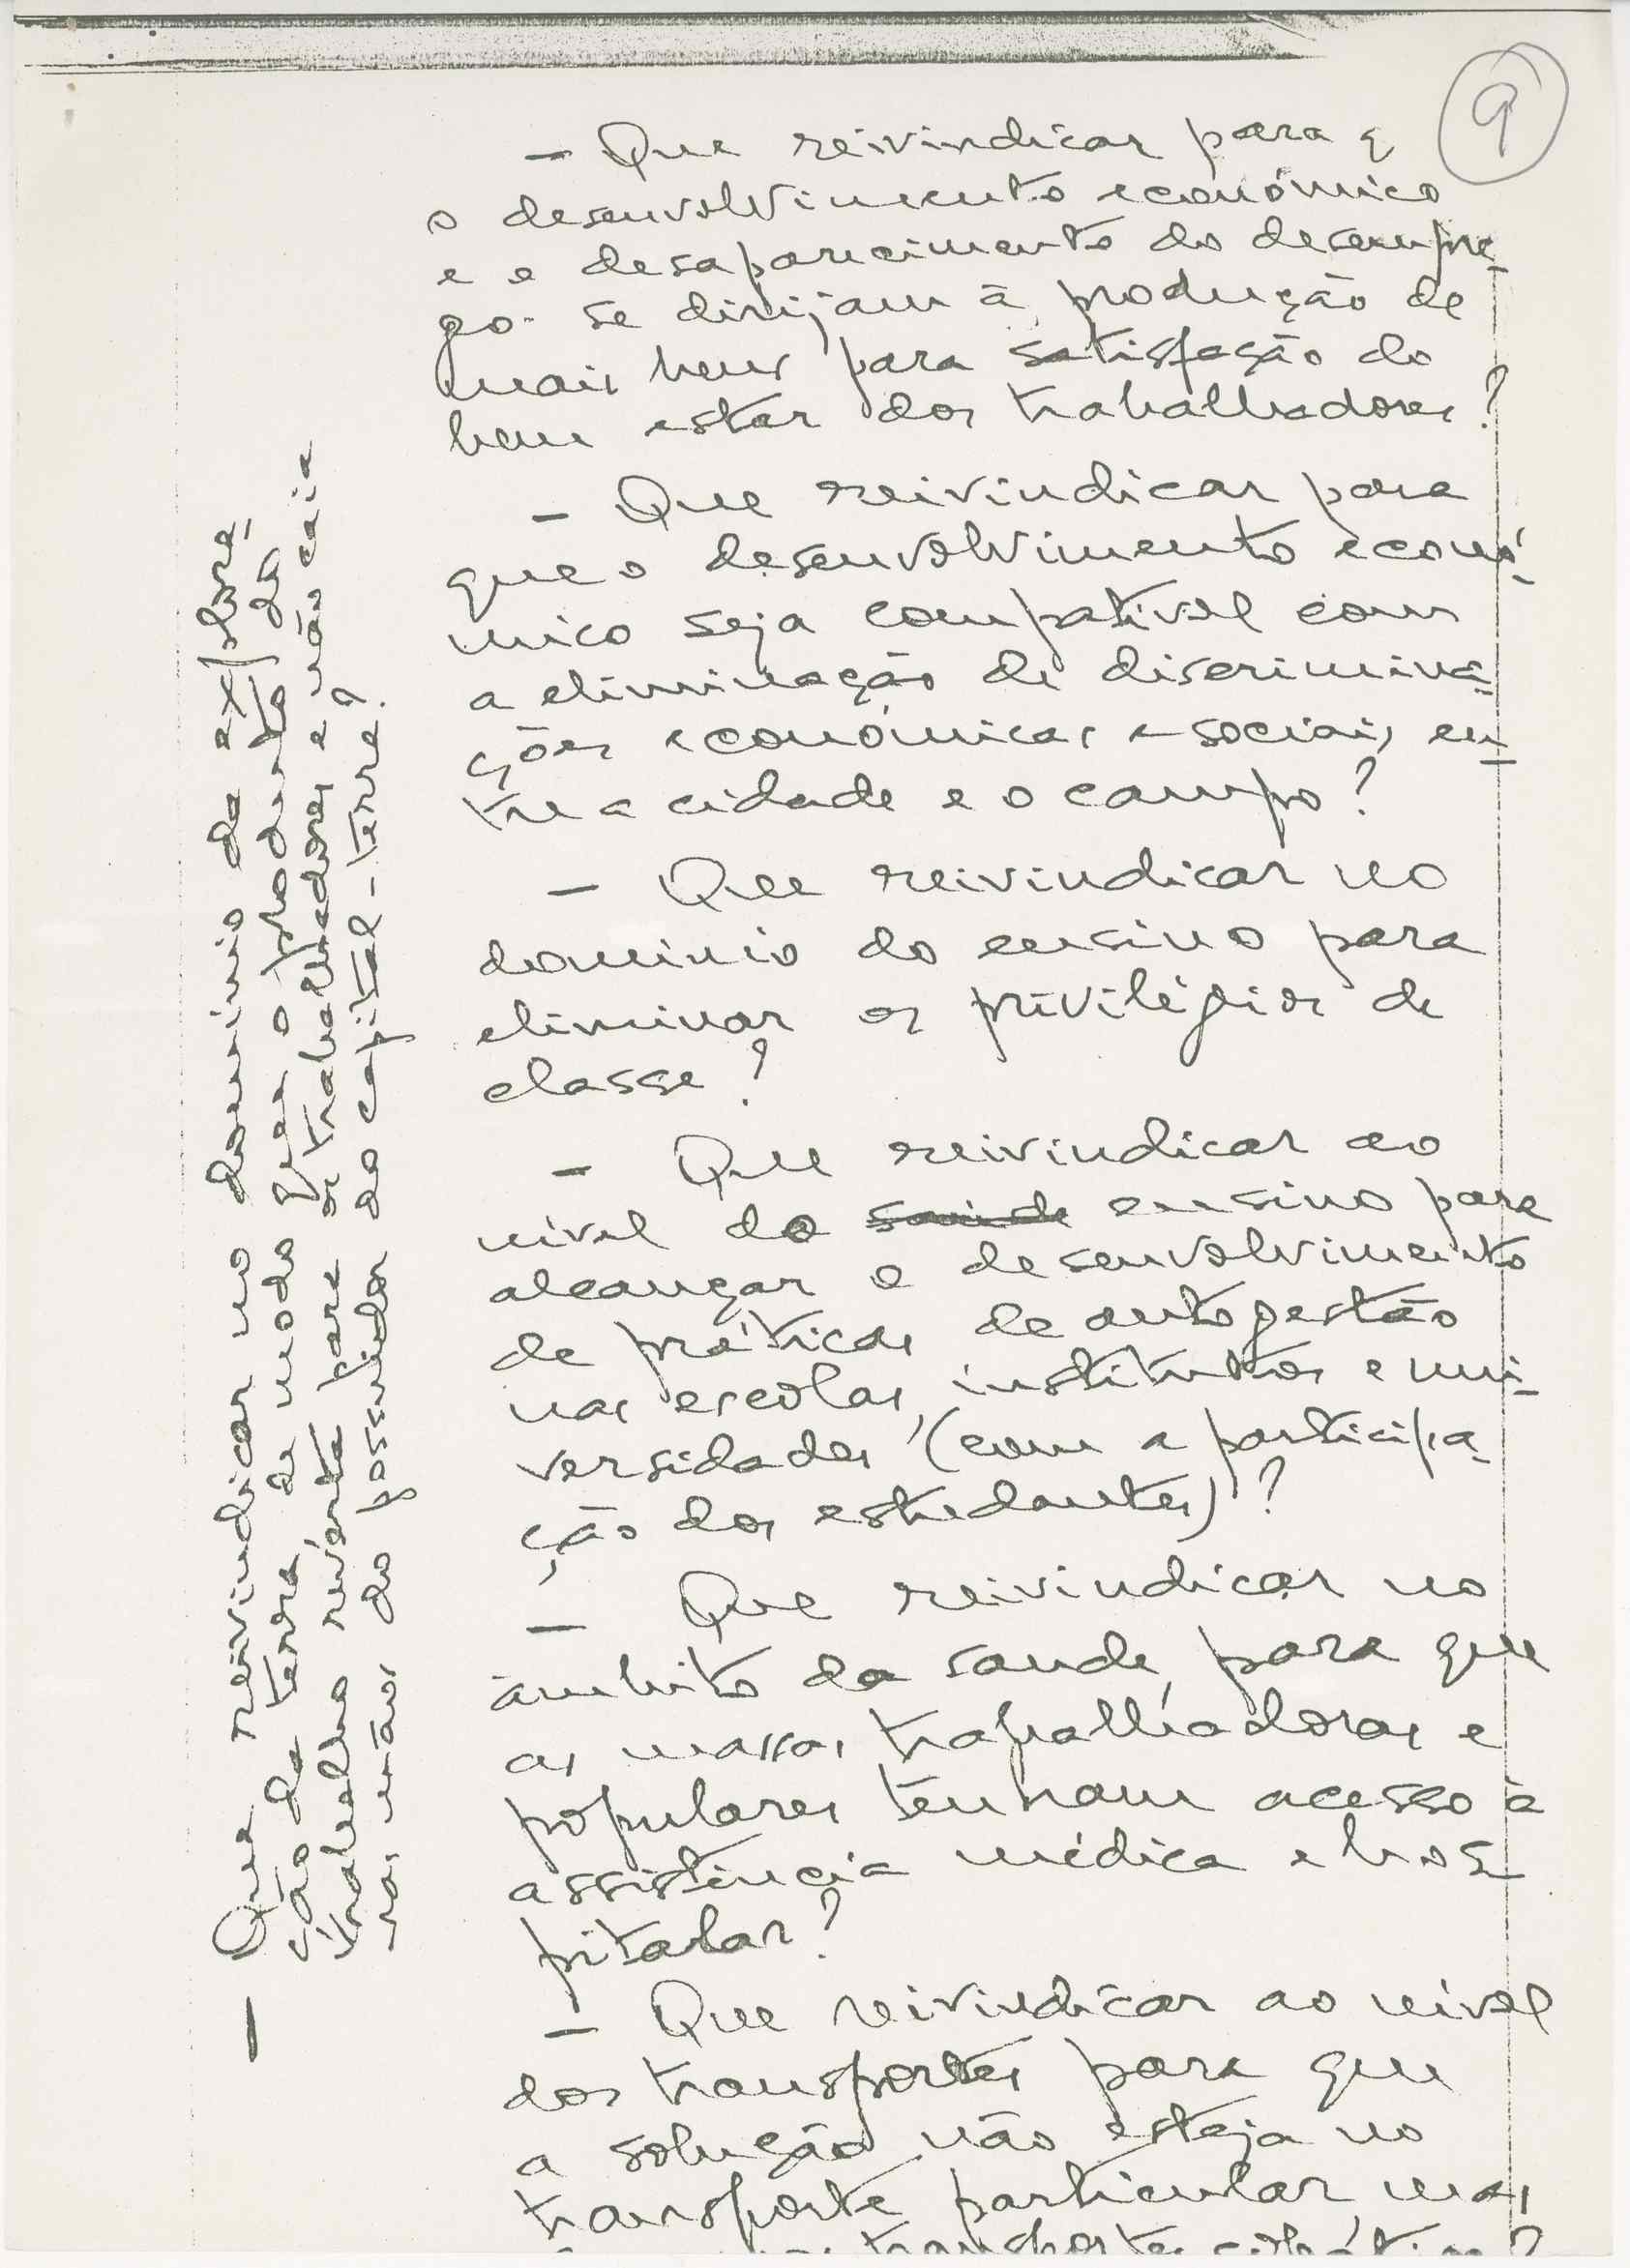 9
- Que reivindicar para q
o desenvolvimento económico
e o desaparecimento do desempre-
go se dirijam à produção de
mais bens para satisfação do
bem estar dos trabalhadores?
- Que reivindicar para
que o desenvolvimento econó-
mico seja compatível com
a eliminação de discrimina-
ções económicas e sociais en-
tre a cidade e o campo?
- Que reivindicar no
domínio do ensino para
eliminar os privilégios de
classe?
- Que reivindicar ao
nível do saúde ensino para
alcançar o desenvolvimento
de práticas de autogestão
nas escolas, institutos e uni-
versidades (com a participa-
ção dos estudantes)?
- Que reivindicar no
âmbito da saúde, para que
as massas trabalhadoras e
populares tenham acesso à
assistência médica e hos-
pitalar?
- Que reivindicar ao nível
dos transportes para que
a solução não esteja no
transporte particular, mas
transporte colectivo?
- Que reivindicar no domínio da explora-
ção da terra, de modo que o produto do
trabalho reverta para os trabalhadores e não caia
nas mãos do possuidor do capital-terra?